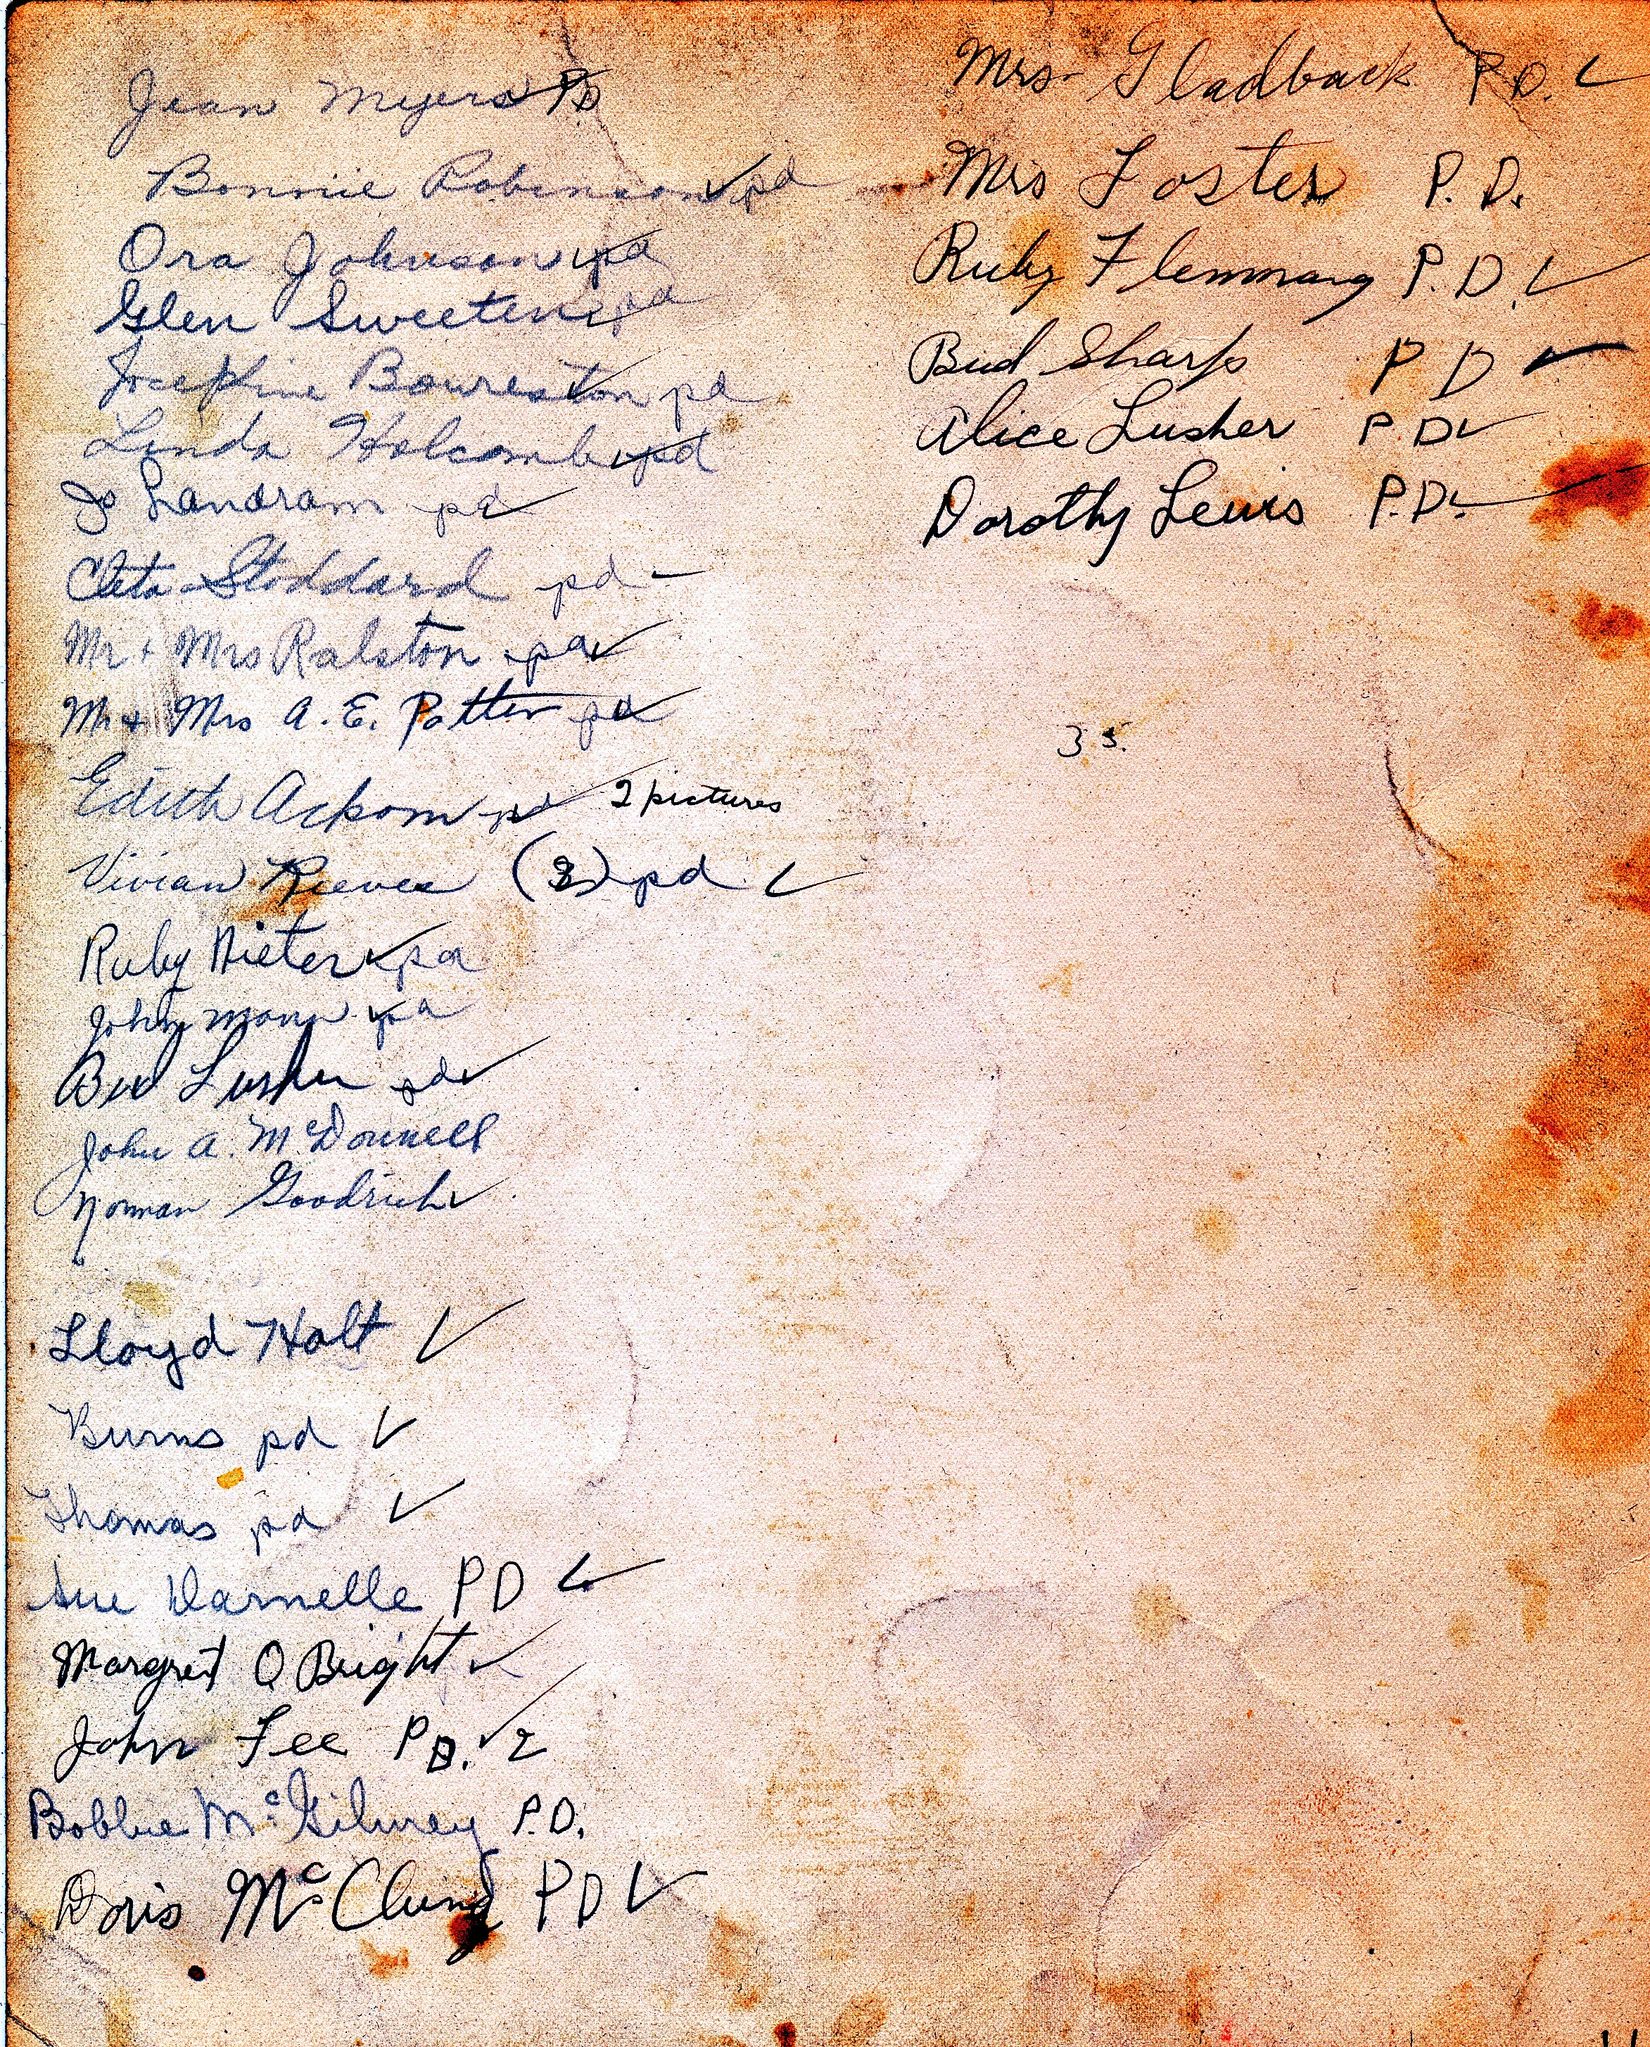 Jean Myers PD
Bonnie Robinson ✓ pd
Ora Johnson ✓ pd
Glen Sweeten ✓ pd
Josephine Boureston ✓ pd
Linda Holcomb ✓ pd
Jo Landram pd ✓
Cleta Stoddard pd ✓
Mr + Mrs Ralston pd ✓
Mr + Mrs A. E. Potter pd ✓
Edith Ackom pd ✓ 2 pictures
Vivian Reeves pd ✓
Ruby Dieter ✓ pd
John Mann ✓ pd
Bud Lusher pd ✓
John A. McDonnell
Norman Goodrich ✓
Lloyd Holt ✓
Burns pd ✓
Thomas pd ✓
Sue Darnelle PD ✓
Margret O Bright ✓
John Fee P.D. ✓ 2
Bobbie McGilvrey P.D.
Doris McClung PD ✓
Mrs Gladback P.D. ✓
Mrs Foster P.D.
Ruby Flemmang P.D. ✓
Bud Sharp PD ✓
Alice Lusher P.D ✓
Dorothy Lewis P.D. ✓
35.